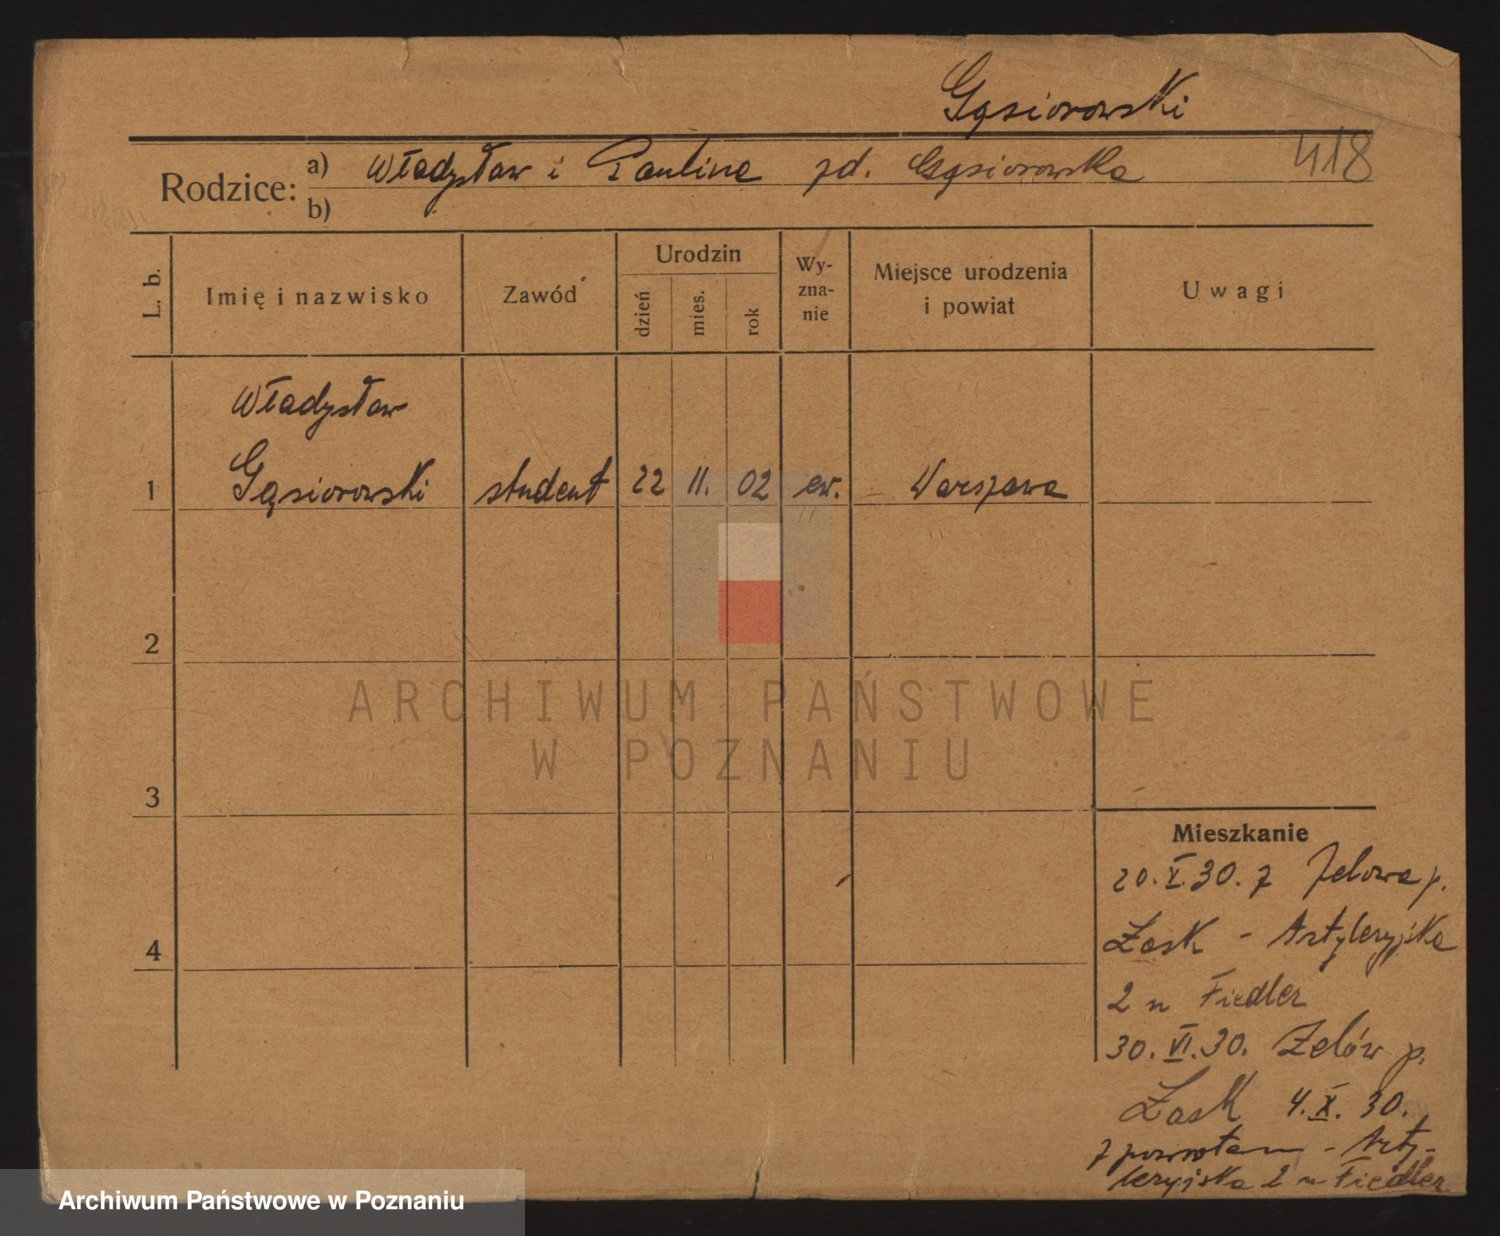 Gąsiorowski
418
Rodzice: a) Władysław i Paulina zd. Gąsiorowska
b)
L. b.
Imię i nazwisko
Zawód
Urodzin
dzień
mies.
rok
Wy-
zna-
nie
Miejsce urodzenia
i powiat
Uwagi
Władysław
1 Gąsiorowski student 22 11. 02 ew. Warszawa
2
ARCHIWUM PAŃSTWOWE
W POZNANIU
3
Mieszkanie
20.X.30. z Zelowa p.
Łask - Artyleryjska
4
2 u Fiedler
30.VI.30. Zelów p.
Łask 4.X.30.
z powrotem - Arty-
leryjska 2 u Fiedler
Archiwum Państwowe w Poznaniu